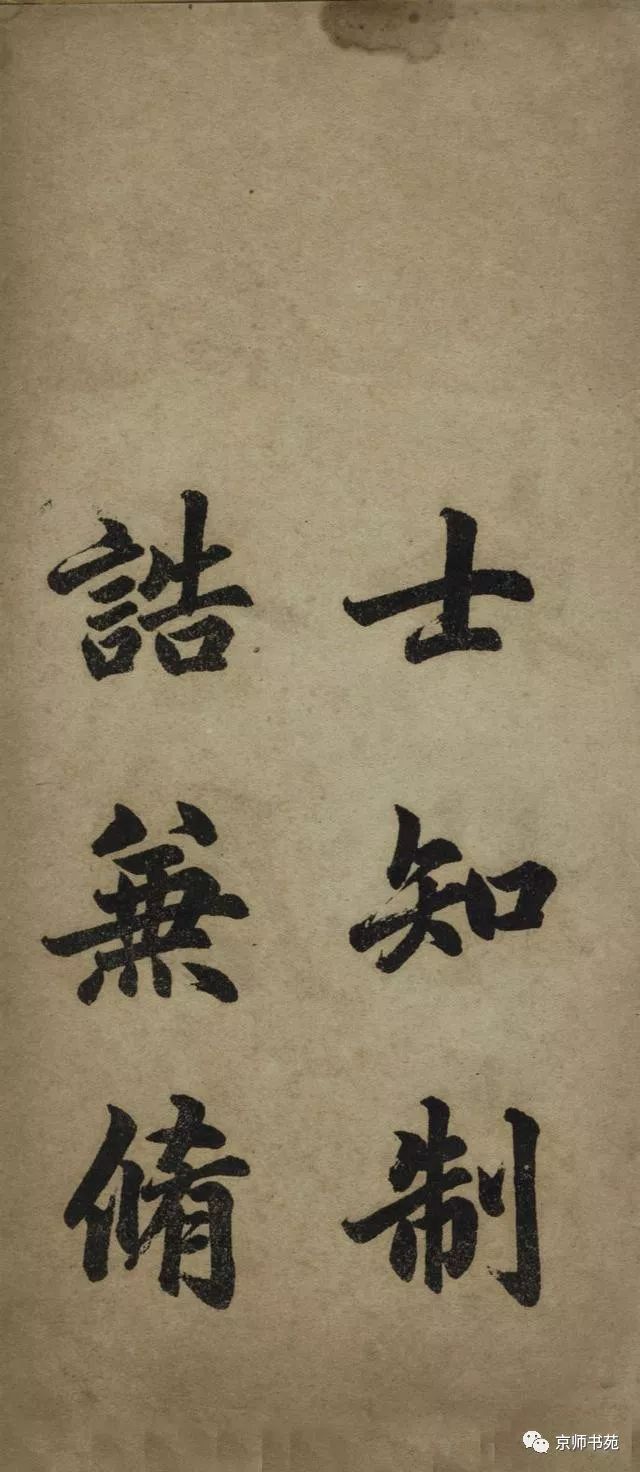 士知制
誥兼脩
京师书苑